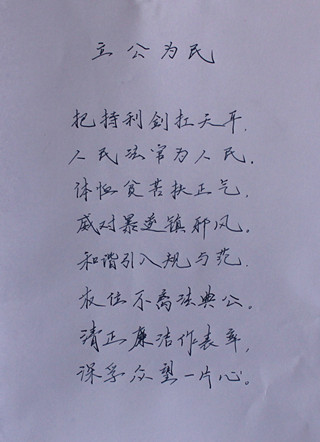 立公为民
把持利剑扛天平,
人民法官为人民。
体恤贫苦扶正气,
威对暴逆镇邪风。
和谐引入规与范,
权位不离法典公。
清正廉洁作表率,
深孚众望一片心。